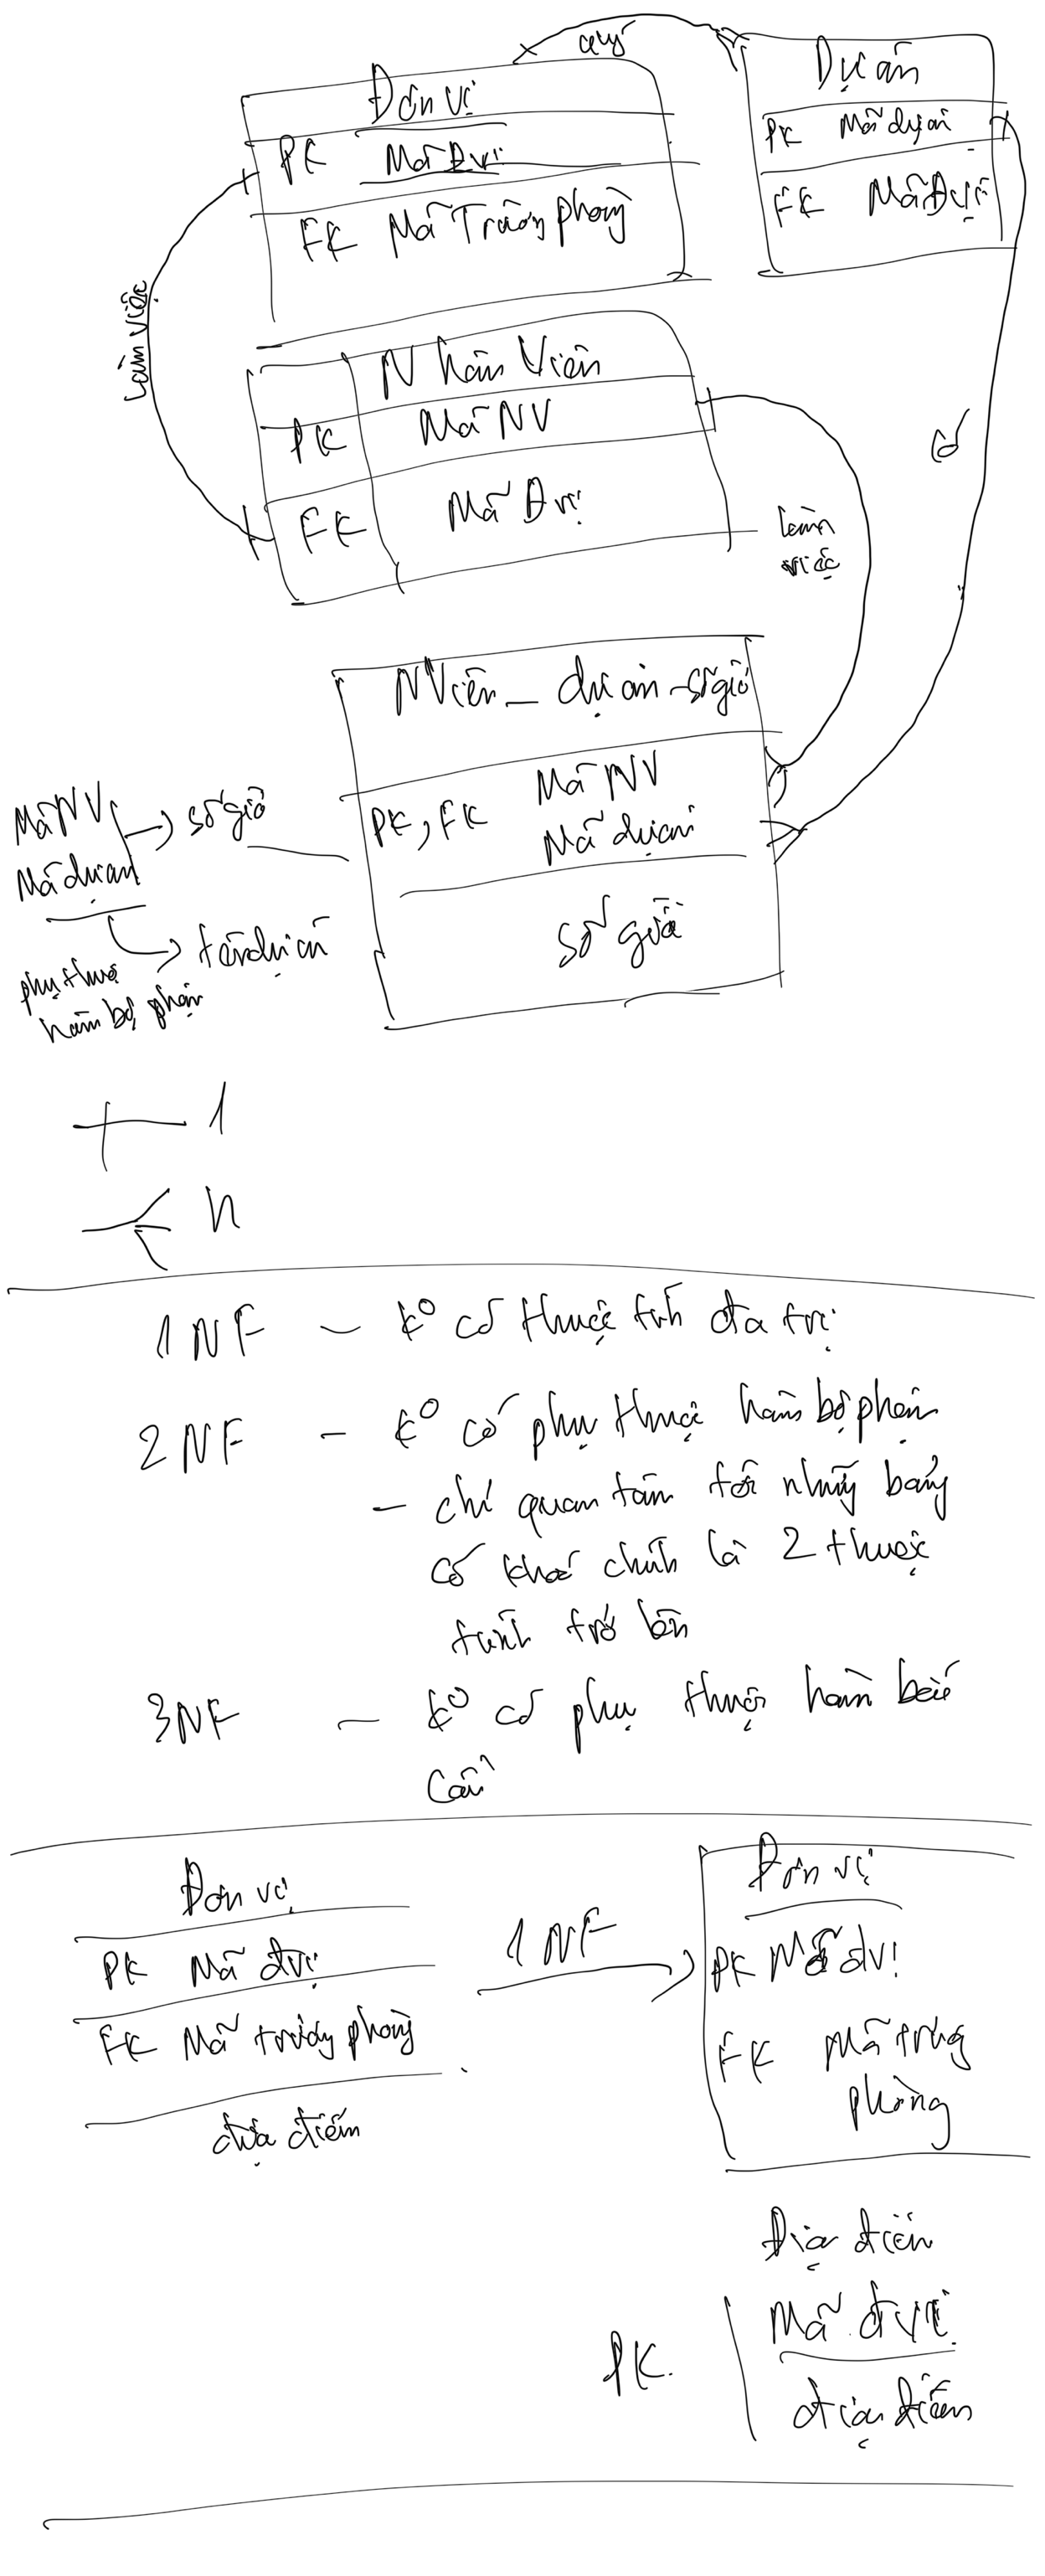 Đơn vị
PK Mã Đvị
FK Mã Trưởng phòng
Dự án
PK Mã dự án
FK Mã Đvị
làm việc
Nhân Viên
PK Mã NV
FK Mã Đvị
có
làm
việc
NViên_dự án_số giờ
PK, FK Mã NV
Mã dự án
số giờ
Mã NV
Mã dự án
→ số giờ
→ tên dự án
phụ thuộc
hàm bộ phận
1
n
1NF - k° có thuộc tính đa trị
2NF - k° có phụ thuộc hàm bộ phận
- chỉ quan tâm tới những bảng
có khoá chính là 2 thuộc
tính trở lên
3NF - k° có phụ thuộc hàm bắc
cầu
Đơn vị
PK Mã đvị
FK Mã trưởng phòng
địa điểm
1NF
Đơn vị
PK Mã đvị
FK Mã trưởng
phòng
Địa điểm
PK Mã đvị
địa điểm